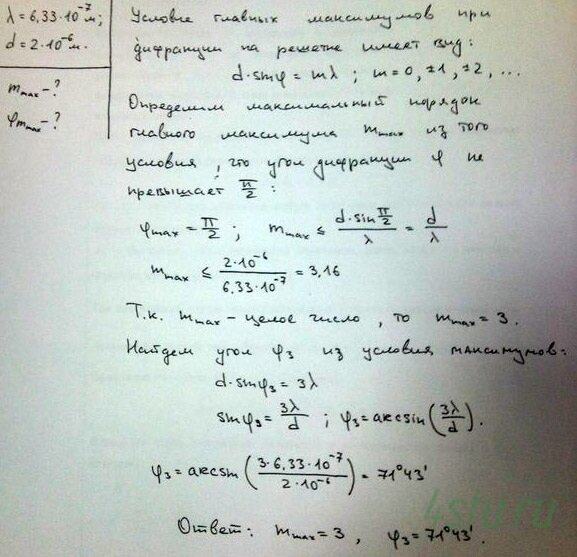 λ = 6,33·10⁻⁷ м;
d = 2·10⁻⁶ м.
m_max - ?
φ_m_max - ?
Условие главных максимумов при
дифракции на решетке имеет вид:
d·sinφ = mλ ; m = 0, ±1, ±2, ...
Определим максимальный порядок
главного максимума m_max из того
условия, что угол дифракции φ не
превышает π/2 :
φ_max = π/2 ; m_max ≤ d·sin π/2 / λ = d/λ
m_max ≤ 2·10⁻⁶ / 6,33·10⁻⁷ = 3,16
Т.к. m_max – целое число, то m_max = 3.
Найдем угол φ₃ из условия максимумов:
d·sinφ₃ = 3λ
sinφ₃ = 3λ/d ; φ₃ = arcsin(3λ/d).
φ₃ = arcsin(3·6,33·10⁻⁷ / 2·10⁻⁶) = 71°43'
Ответ: m_max = 3, φ₃ = 71°43'.
4stu.ru